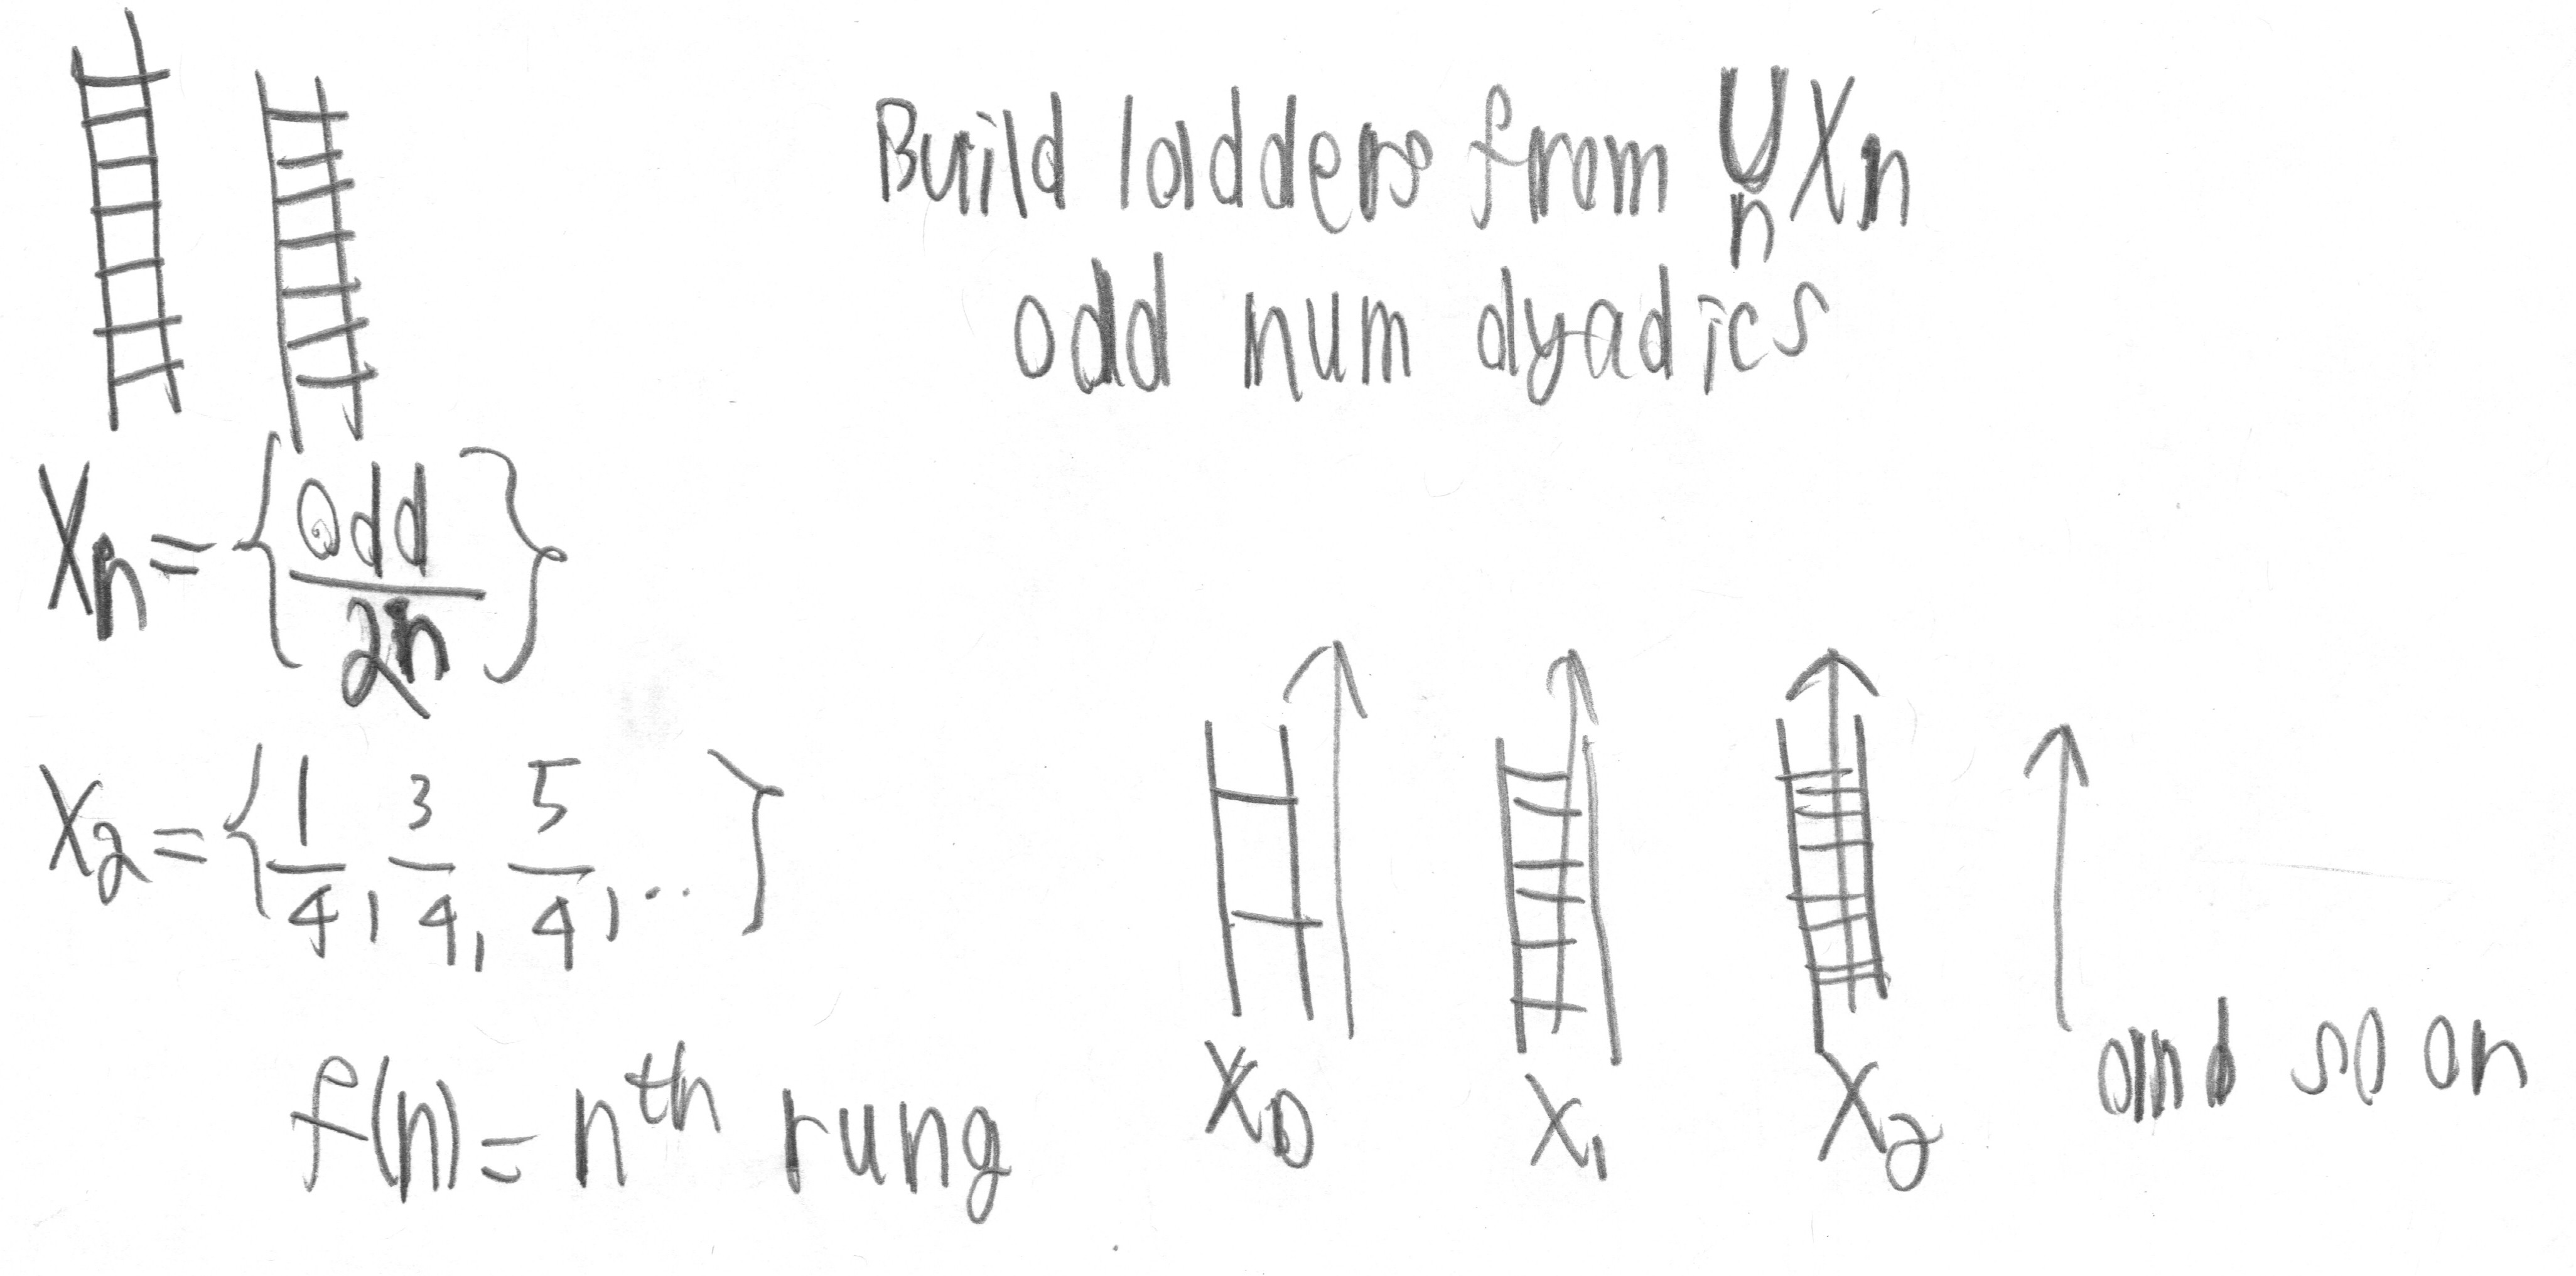 Build ladders from ⋃ₙ Xₙ
odd num dyadics
Xₙ = { Odd / 2ⁿ }
X₂ = { 1/4, 3/4, 5/4, ... }
f(n) = nᵗʰ rung
X₀ X₁ X₂ and so on